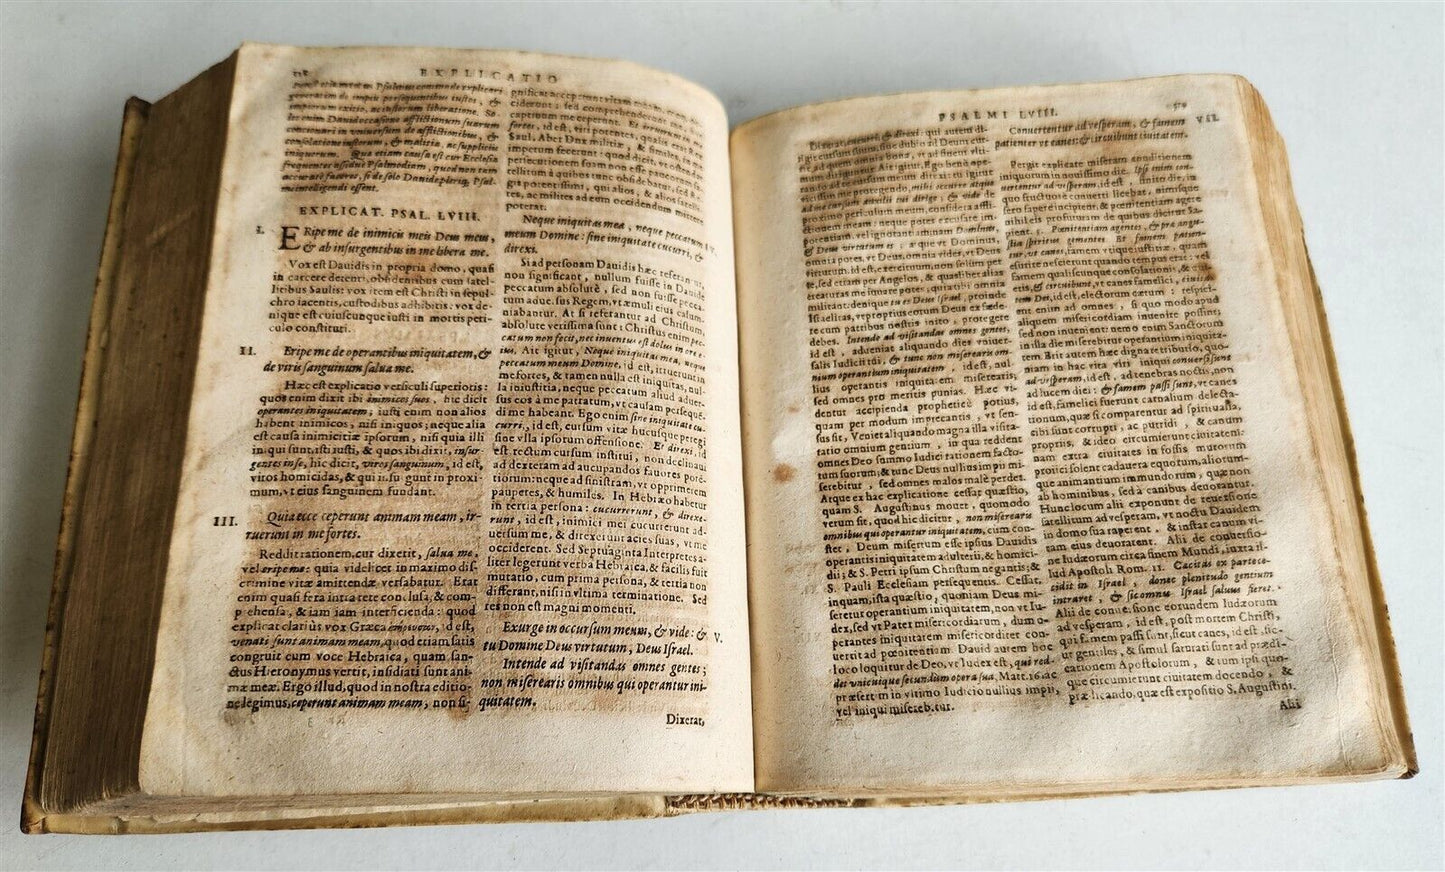 EXPLICATIO
EXPLICAT. PSAL. LVIII.
I. ERipe me de inimicis meis Deus meus,
& ab insurgentibus in me libera me.
Vox est Dauidis in propria domo, quasi
in carcere detenti, obsidentibus eum satel-
litibus Saulis: vox item est Christi in sepul-
chro iacentis, custodibus adhibitis: vox de-
nique est cuiuscunque iusti in mortis peri-
culo constituti.
II. Eripe me de operantibus iniquitatem, &
de viris sanguinum salua me.
Hæc est explicatio versiculi superioris:
quos enim dixit ibi inimicos suos, hic dicit
operantes iniquitatem; iusti enim non alios
habent inimicos, nisi iniquos; neque alia
est causa inimicitiæ ipsorum, nisi quia illi
iniqui sunt, isti iusti, & quos ibi dixit, insur-
gentes in se, hic dicit, viros sanguinum, id est,
viros homicidas, & qui insurgunt in proxi-
mum, vt eius sanguinem fundant.
III. Quia ecce ceperunt animam meam, ir-
ruerunt in me fortes.
Reddit rationem, cur dixerit, salua me,
vel eripe me: quia videlicet in maximo dis-
crimine vitæ amittendæ versabatur. Erat
enim quasi fera intra rete conclusa, & com-
prehensa, & iam iam interficienda: quod
explicat clariùs vox Græca id est,
venati sunt animam meam, quod etiam satis
congruit cum voce Hebraica, quam san-
ctus Hieronymus vertit, insidiati sunt ani-
mæ meæ. Ergo illud, quod in nostra editio-
ne legimus, ceperunt animam meam, non si-
gnificat acceperunt
fortes, id est, viri potentes, quales erat
Saul, Abner Dux militiæ, & similes, in me
impetum fecerunt: quod dicit, vt
periectionem suam non esse
tellitum à quibus tunc obsidebatur, sed
gis potentissimi, qui alios, & alios satelli-
tes, ac milites ad eum occidendum mittere
poterat.
Neque iniquitas mea, neque peccatum IV.
meum Domine: sine iniquitate cucurri, &
direxi.
Si ad personam Dauidis hæc referantur,
non significant, nullum fuisse in Dauide
peccatum absolutè, sed non fuisse pecca-
tum aduersus Regem, vt æmuli eius calum-
niabantur. At si referantur ad Christum,
absolute verissima sunt: Christus enim pec-
catum non fecit, nec inuentus est dolus in ore e-
ius. Ait igitur, Neque iniquitas mea, neque
peccatum meum Domine, id est, irruerunt in
me fortes, & tamen nulla est iniquitas, nul-
la iniustitia, neque peccatum aliud aduer-
sus eos à me patratum, vt causam persequē-
di me habeant. Ego enim sine iniquitate cu-
curri, id est, cursum vitæ hucusque peregi
sine vlla ipsorum offensione. Et direxi, id
est rectum cursum institui, non declinaui
ad dexteram ad aucupandos fauores potē-
tiorum: neque ad sinistram, vt opprimerem
pauperes, & humiles. In Hebræo habetur
in tertia persona: cucurrerunt, & direxe-
runt, id est, inimici mei cucurrerunt ad-
uersum me, & direxerunt acies suas, vt me
occiderent. Sed Septuaginta Interpretes a-
liter legerunt verba Hebraica, & facilis fuit
mutatio, cum prima persona, & tertia non
differant, nisi in vltima terminatione. Sed
res non est magni momenti.
Exurge in occursum meum, & vide: & V.
tu Domine Deus virtutum, Deus Israel.
Intende ad visitandas omnes gentes;
non miserearis omnibus qui operantur ini-
quitatem.
Dixerat,
PSALMI LVIII. 579
Dixerat, cucurri, & direxi: qui autem di-
rigit cursum suum, sine dubio ad Deum cur-
proximo periculum meum, considera affli-
ctionem meam: neque potes excusare im-
potentiam, vel ignorantiam; nam Dominus,
& Deus virtutum es: atque vt Dominus,
omnia potes, vt Deus, omnia vides, vt Deus
virtutum, id est, exercituum, non solum per
te, sed etiam per Angelos, & quaslibet alias
creaturas me iuuare potes; quia tibi omnia
militant: denique tu es Deus Israel, proinde
Israelitas, vt proptios cultores Deus ex fœde-
re cum patribus nostris inito, protegere
debes. Intende ad visitandas omnes gentes,
id est, adueniat aliquando dies vniuer-
salis Iudicij tui, & tunc non miserearis om-
nium operantium iniquitatem, id est, nul-
lius operantis iniquitatem miserearis,
sed omnes pro meritis punias. Hæc vi-
dentur accipienda propheticè potius,
quam per modum imprecantis, vt sen-
sus sit, Veniet aliquando magna illa visita-
tatio omnium gentium, in qua reddent
omnes Deo summo Iudici rationem facto-
rum suorum: & tunc Deus nullius impij mi-
serebitur, sed omnes malos malè perdet.
Atque ex hac explicatione cessat quæstio,
quam S. Augustinus mouet, quomodo
verum sit, quod hic dicitur, non miserearis
omnibus qui operantur iniquitatem, cùm con-
stet, Deum misertum esse ipsius Dauidis
operantis iniquitatem adulterij, & homici-
dij; & S. Petri ipsum Christum negantis; &
S. Pauli Ecclesiam persequentis. Cessat,
inquam, ista quæstio, quoniam Deus mi-
seretur operantium iniquitatem, non vt Iu-
dex, sed vt Pater misericordiarum, dum o-
perantes iniquitatem misericorditer con-
uertit ad pœnitentiam. Dauid autem hoc
loco loquitur de Deo, vt Iudex est, qui red-
det vnicuique secundum opera sua, Matt. 16. ac
præsertim in vltimo Iudicio nullius impij,
vel iniqui miserebitur.
Conuertentur ad vesperam, & famem VII.
patientur vt canes: & circuibunt ciuitatem.
Pergit explicare miseram conditionem
iniquorum in nouissimo die. Ipsi enim con-
uertentur ad vesperam, id est, sinito die, in
quo fructuosè conuerti licebat, nimisque
serò sapere incipient, & pœnitentiam agere
nihil eis profuturam de quibus dicitur Sa-
pient. 5. Pœnitentiam agentes, & præ angu-
stia spiritus gementes. Et famem patien-
tur, vt canes,
famem qualiscunque consolationis, &
& circuibunt, vt canes famelici,
tem Dei, id est, electorum cœtum: respici-
ent ad omnes, si quo modo apud
aliquem misericordiam inuenire possint;
sed non inuenient: nemo enim Sanctorum
niam in hac vita viri iniqui conuersi sunt
ad vesperam, id est, ad tenebras noctis, non
ad lucem diei: & famem passi sunt, vt canes
id est, famelici fuerunt carnalium delecta-
tionum, quæ si comparentur ad spiritualia,
cibi sunt corrupti, ac putridi, & canum
proprij, & ideo circumierunt ciuitatem:
nam extra ciuitates in fossis muro-
proijci solent cadauera equorum, aliorum-
que animantium immundorum, quæ non
ab hominibus, sed à canibus deuorantur.
Hunc locum alij exponunt de reuersione
satellitum ad vesperam, vt noctu Dauidem
in domo sua raperent, & instar canum vi-
tam eius deuorarent. Alij de conuersio-
ne Iudæorum circa finem Mundi, iuxta il-
lud Apostoli Rom. 11. Cæcitas ex parte con-
tidit in Israel, donec plenitudo gentium
intraret, & sic omnis Israel saluus fieret.
Alij de conuersione eorundem Iudæorum
ad vesperam, id est, post mortem Christi,
qui famem passi sunt, sicut canes, id est, sic-
ut gentiles, & simul saturati sunt ad prædi-
cationem Apostolorum, & tum ipsi quo-
que circumierunt ciuitatem docendo, &
prædicando, quæ est expositio S. Augustini.
Alij